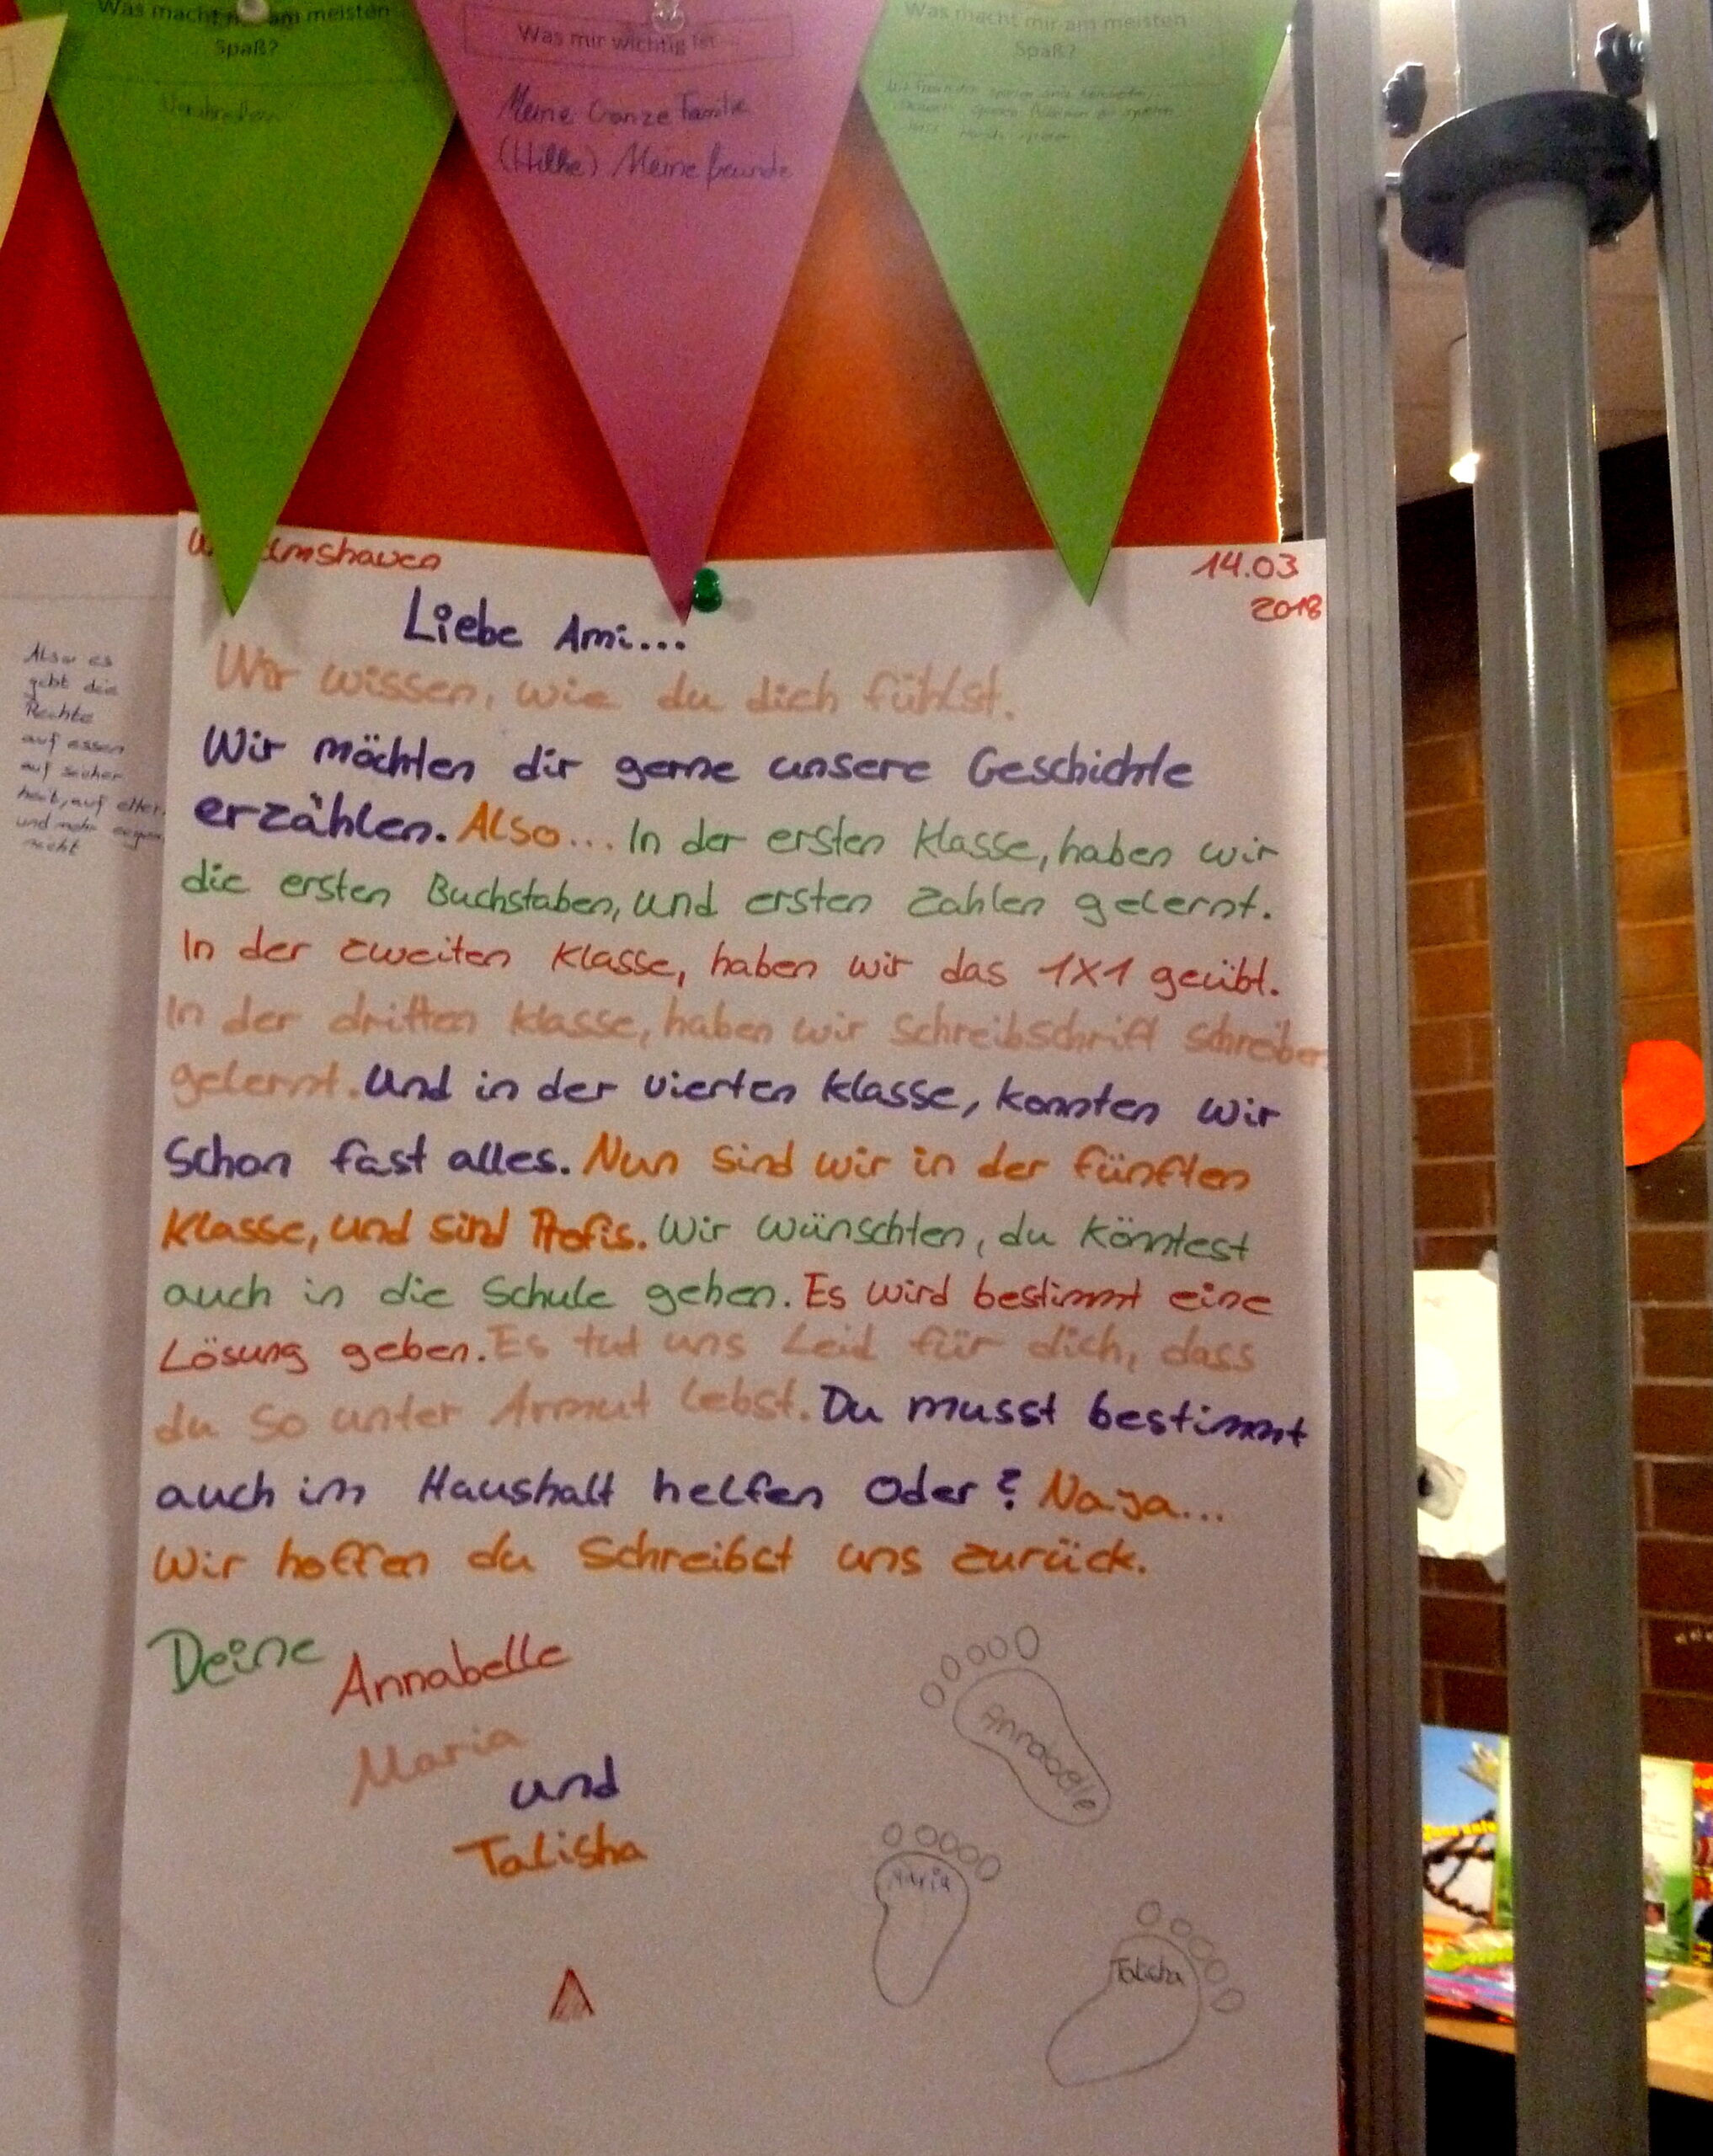 Was macht mir am meisten
Spaß?
Was mir wichtig ist
Meine Ganze Familie
(Hilke) Meine freunde
Was macht mir am meisten
Spaß?
14.03
2018
Liebe Ami...
Wir wissen, wie du dich fühlst.
Wir möchten dir gerne unsere Geschichte
erzählen. Also... In der ersten Klasse, haben wir
die ersten Buchstaben, und ersten Zahlen gelernt.
In der zweiten Klasse, haben wir das 1x1 geübt.
In der dritten Klasse, haben wir Schreibschrift schreiben
gelernt. Und in der vierten Klasse, konnten wir
schon fast alles. Nun sind wir in der fünften
Klasse, und sind Profis. Wir wünschten, du könntest
auch in die Schule gehen. Es wird bestimmt eine
Lösung geben. Es tut uns Leid für dich, dass
du so unter Armut lebst. Du musst bestimmt
auch im Haushalt helfen oder? Naja...
Wir hoffen du schreibst uns zurück.
Deine Annabelle
Maria
und
Talisha
Annabelle
Maria
Talisha
Also es
gibt die
Rechte
auf essen
auf sicher
heit, auf
und mehr
recht